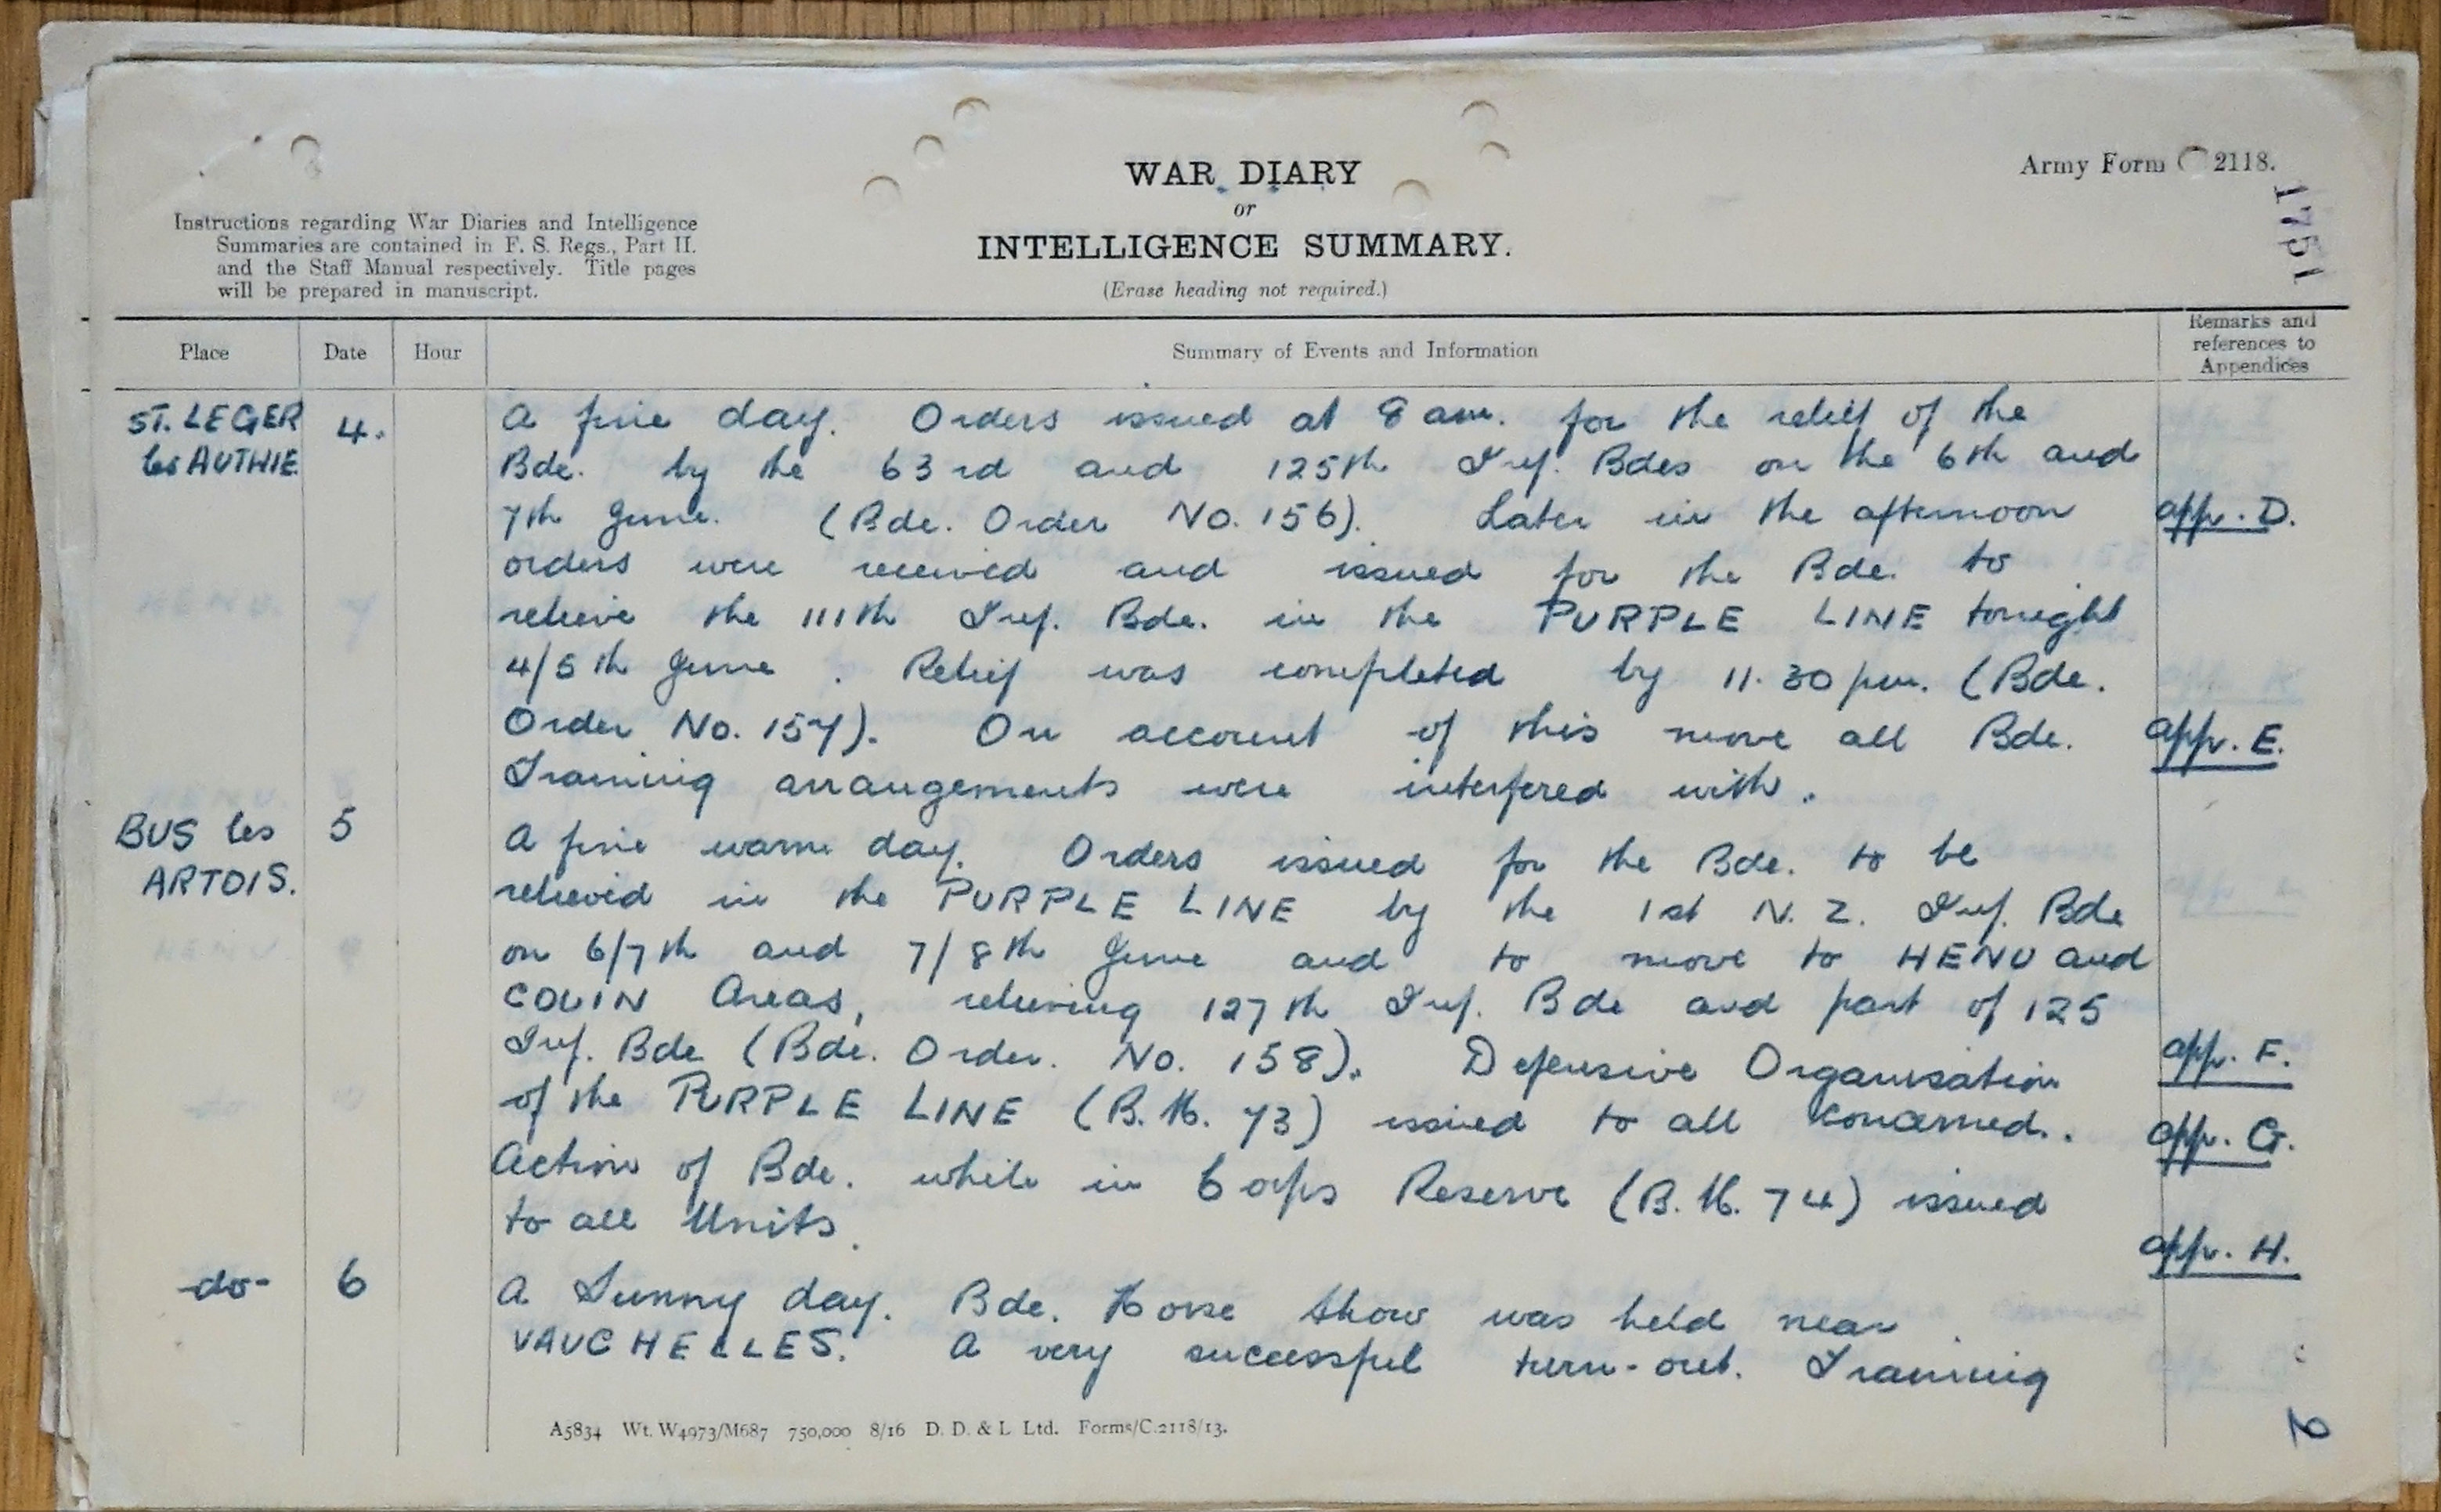 Army Form C 2118.
1751
WAR DIARY
or
INTELLIGENCE SUMMARY.
(Erase heading not required.)
Instructions regarding War Diaries and Intelligence
Summaries are contained in F. S. Regs., Part II.
and the Staff Manual respectively. Title pages
will be prepared in manuscript.
Place Date Hour Summary of Events and Information Remarks and
references to
Appendices
ST. LEGER 4. A fine day. Orders issued at 8 am. for the relief of the
les AUTHIE Bde. by the 63rd and 125th Inf. Bdes on the 6th and
7th June. (Bde. Order No. 156). Later in the afternoon app. D.
orders were received and issued for the Bde. to
relieve the 111th Inf. Bde. in the PURPLE LINE tonight
4/5th June. Relief was completed by 11.30 pm. (Bde.
Order No. 157). On account of this move all Bde. app. E.
Training arrangements were interfered with.
BUS les 5 A fine warm day. Orders issued for the Bde. to be
ARTOIS. relieved in the PURPLE LINE by the 1st N. Z. Inf. Bde
on 6/7th and 7/8th June and to move to HENU and
COUIN Areas, relieving 127th Inf. Bde and part of 125
Inf. Bde (Bde. Order. No. 158). Defensive Organisation app. F.
of the PURPLE LINE (B.M. 73) issued to all concerned.. app. G.
Action of Bde. while in Corps Reserve (B.M. 74) issued
to all Units. app. H.
-do- 6 A Sunny day. Bde. Horse Show was held near
VAUCHELLES. A very successful turn-out. Training
A5834 Wt. W4973/M687 750,000 8/16 D. D. & L Ltd. Forms/C.2118/13.
2